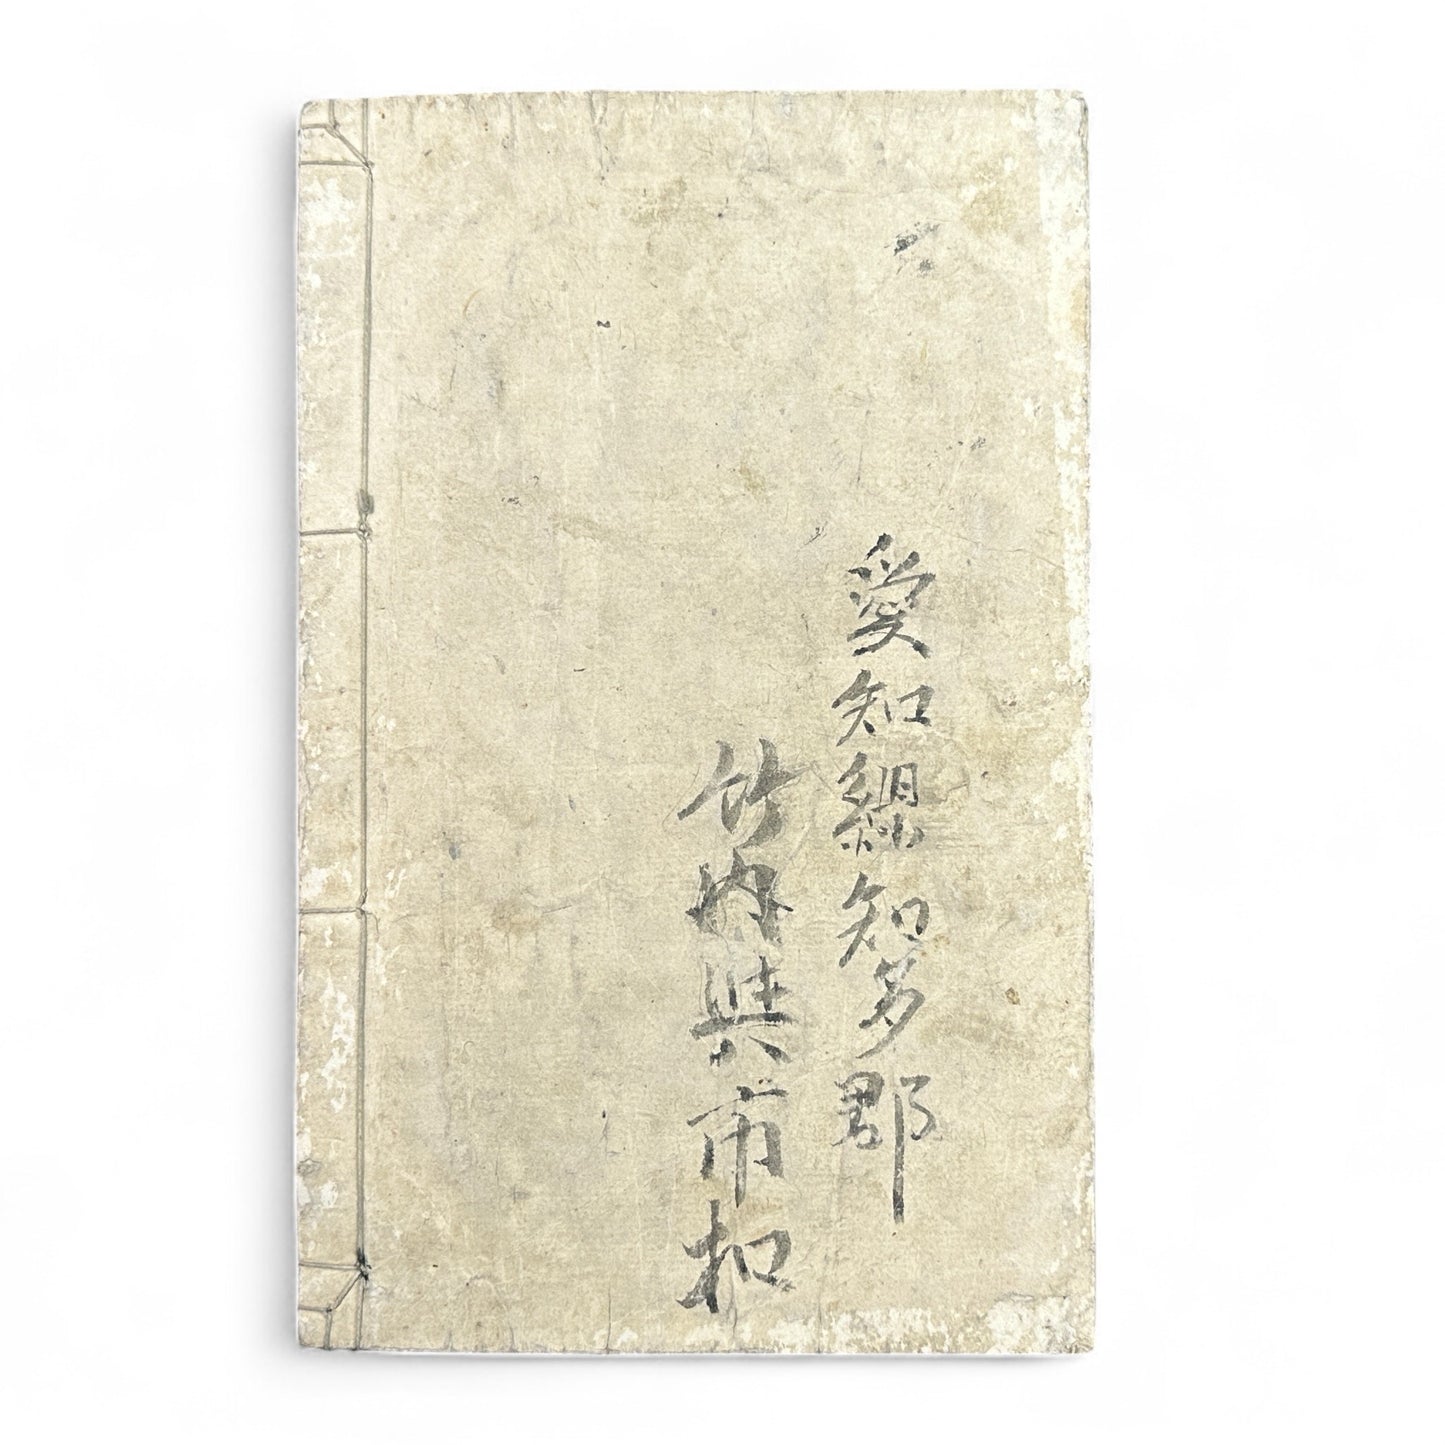 愛知縣知多郡
竹内與市扣